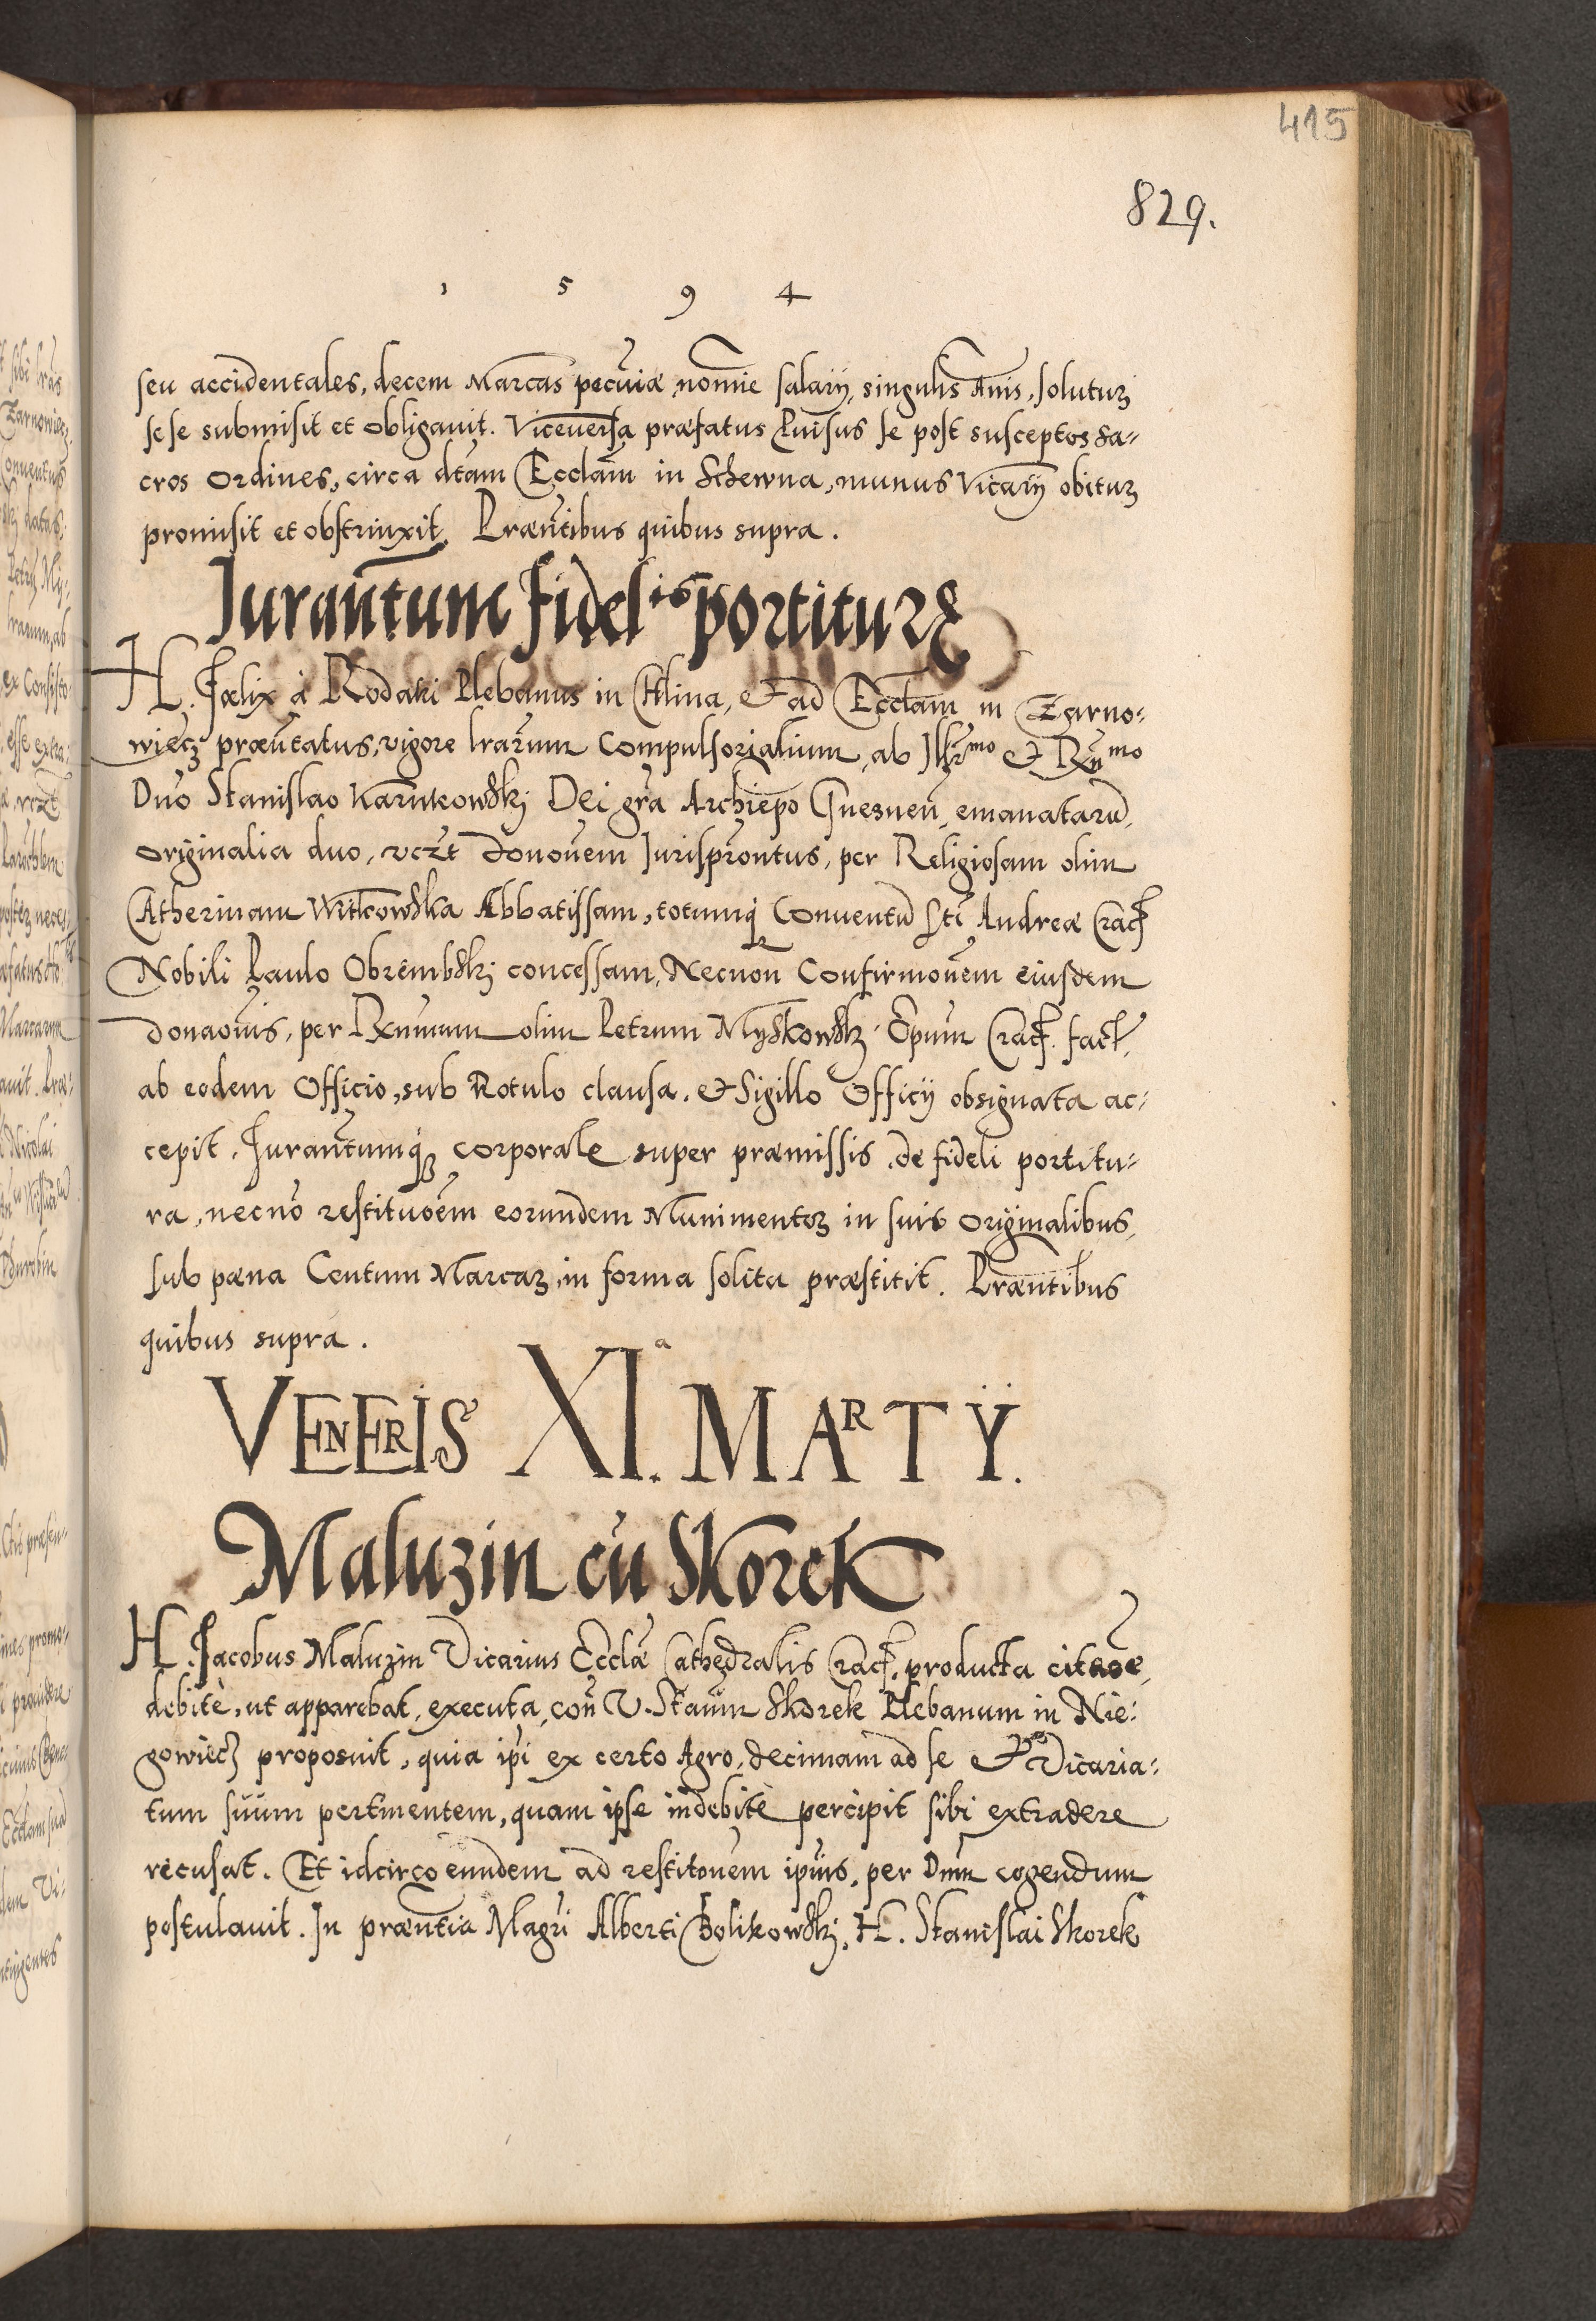 415
829.
1 5 9 4
seu accidentales, decem Marcas pecuniæ, nomie salarij, singulis Annis, soluturꝫ
sese submisit et obligauit. Viceuersa præfatus Prousus se post susceptos sa-
cros Ordines, circa dtam Ecclam in Schewna, munus Vicarij obiturꝫ
promisit et obstrinxit. Præntibus quibus supra.
Jurantum fidelis portituræ
H. Fœlix à Rodaki Plebanus in Chlina, et ad Ecclam in Czarno-
wiecz præntatus, vigore lrarum Compulsorialium, ab Illrmo et Rndmo
Dno Stanislao Karnkowski Dei gra Archiepo Gnesnen, emanatarū,
Originalia duo, vczt Donouem Jurisprontus, per Religiosam olim
Catherinam Witkowska Abbatissam, totumq Conuentū Sti Andreæ Crac
Nobili Paulo Obrembski concessam, Necnon Confirmouem eiusdem
donaouis, per Rndmum olim Petrum Myskowski Epum Crac. fact,
ab eodem Officio, sub Rotulo clausa, et Sigillo Officij obsignata ac-
cepit. Jurantumqꝫ corporale super præmissis, de fideli portitu-
ra, necnō restituoem eorundem Munimentoꝫ in suis originalibus,
sub pœna Centum Marcaꝫ, in forma solita præstitit. Præntibus
quibus supra.
VENERIS XI.a MARTY.
Maluzin cū Skorek
H. Jacobus Maluzin Vicarius Ecclæ Cathedralis Crac. producta citaoe,
debitè, ut apparebat, executa, con V. Staum Skorek Plebanum in Nie-
gowiecz proposuit, quia ipi ex certo Agro, decimam ad se et Vicaria-
tum suum pertinentem, quam ipse indebitè percipit sibi extradere
recusat. Et idcirco eundem ad restitouem ipuis, per Dnm cogendum
postulauit. In præntia Magri Alberti Bolikowski, H. Stanislai Skorek